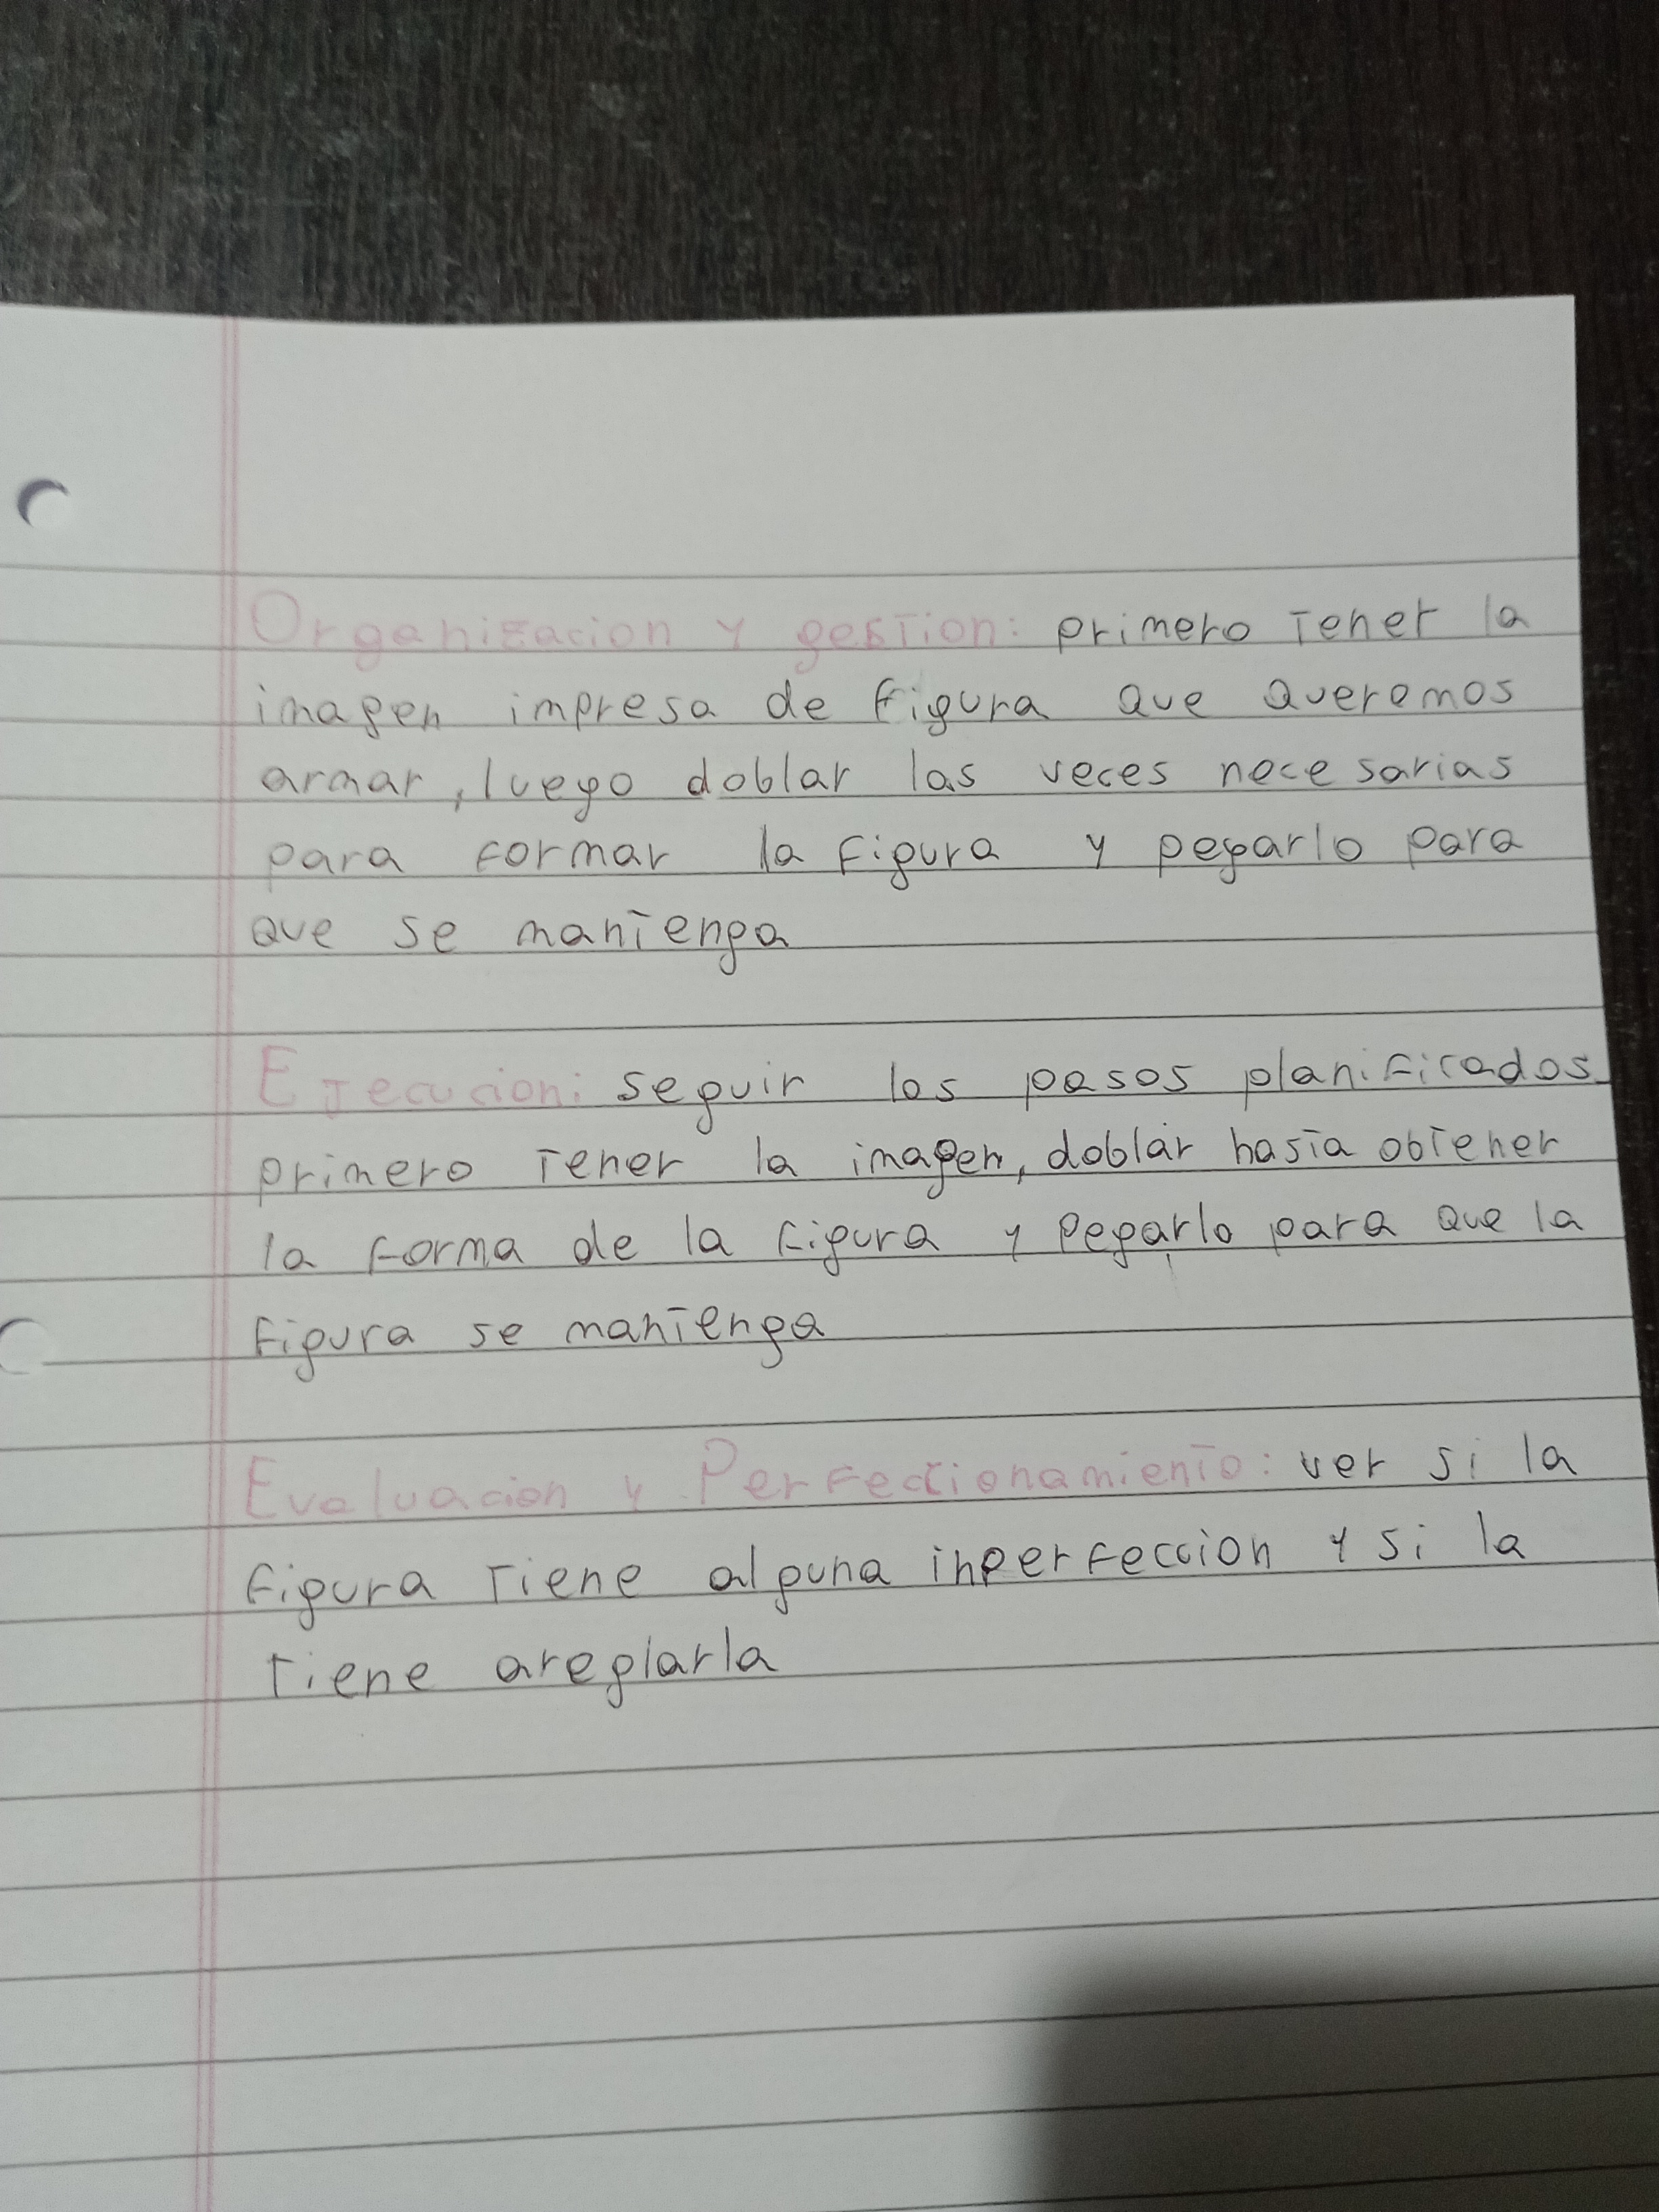 Organizacion y gestion: primero tener la
imagen impresa de figura que queremos
armar, luego doblar las veces necesarias
para formar la figura y pegarlo para
que se mantenga
Ejecucion: seguir los pasos planificados
primero tener la imagen, doblar hasta obtener
la forma de la figura y pegarlo para que la
figura se mantenga
Evaluacion y Perfeccionamiento: ver si la
figura tiene alguna inperfeccion y si la
tiene areglarla